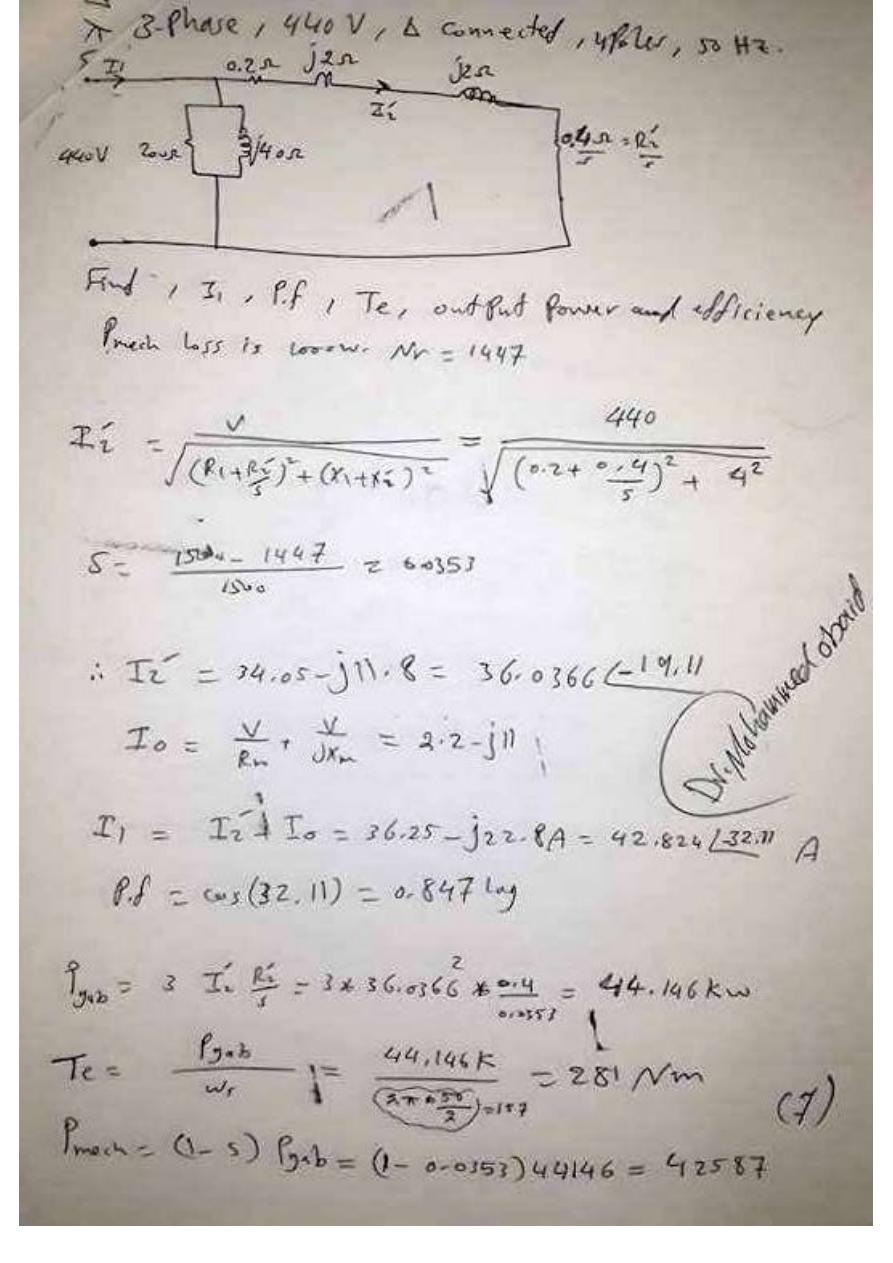 3-Phase, 440 V, Δ connected, 4 Poles, 50 HZ.
I1 0.2Ω j2Ω j2Ω
I2'
440V 200Ω j40Ω 0.4Ω/s = R2'/s
Find, I1, P.f, Te, output Power and efficiency
Pmech Loss is 1000w. Nr = 1447
I2' = V / √((R1+R2'/s)² + (X1+X2')²) = 440 / √((0.2+0.4/s)² + 4²)
S = (1500 - 1447) / 1500 = 0.0353
∴ I2' = 34.05-j11.8 = 36.0366∠-19.11
Io = V/Rm + V/jXm = 2.2-j11
Dr. Mohammed obaid
I1 = I2' + Io = 36.25-j22.8A = 42.824∠-32.11 A
P.f = cos(32.11) = 0.847 lag
Pgab = 3 I2'² R2'/s = 3*36.0366²*0.4/0.0353 = 44.146 kw
Te = Pgab/ws = 44.146K / (2π*50/2)=157 = 281 Nm
(7)
Pmech = (1-s) Pgab = (1-0.0353)44146 = 42587